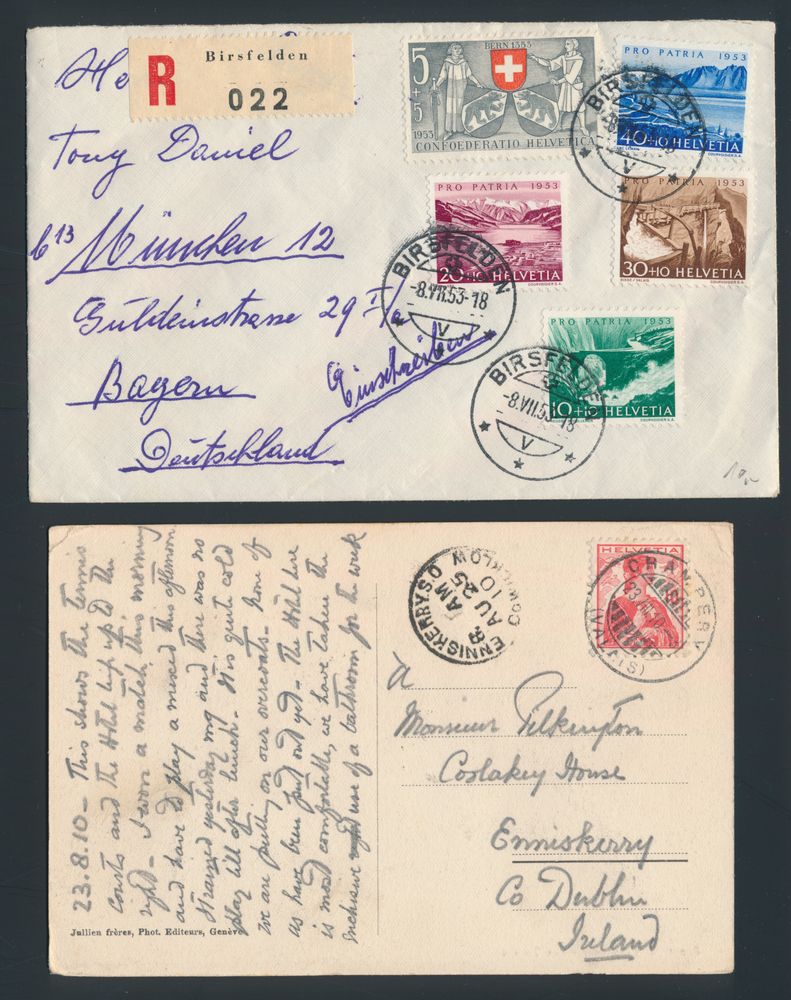 He
Birsfelden
R
022
Tony Daniel
b 13 München 12
Guldeinstrasse 29
Bayern
Einschreiben
Deutschland
BERN 1353
5
+5
1953
CONFOEDERATIO HELVETICA
PRO PATRIA 1953
40+10 HELVETIA
COURVOISIER S.A.
PRO PATRIA 1953
20+10 HELVETIA
COURVOISIER S.A.
PRO PATRIA 1953
30+10 HELVETIA
COURVOISIER S.A.
PRO PATRIA 1953
10+10 HELVETIA
COURVOISIER S.A.
BIRSFELDEN
V
BIRSFELDEN
-8.VII.53-18
V
BIRSFELDEN
-8.VII.53-18
V
23.8.10 – This shows the tennis
courts and the Hotel high up to the
right – I won a match this morning
and have to play a mixed this afternoon
It rained yesterday mg and there was no
play till after lunch – It is quite cold
we are putting on our overcoats. None of
us have been put out yet – The Hotel here
is most comfortable, we have taken the
inclusive use of a bathroom for the week
Jullien frères, Phot. Editeurs, Genève
ENNISKERRY S.O. CO WICKLOW
AM
AU 25
10
HELVETIA
(VALAIS)
à
Monsieur Pilkington
Coolakey House
Enniskerry
Co Dublin
Ireland